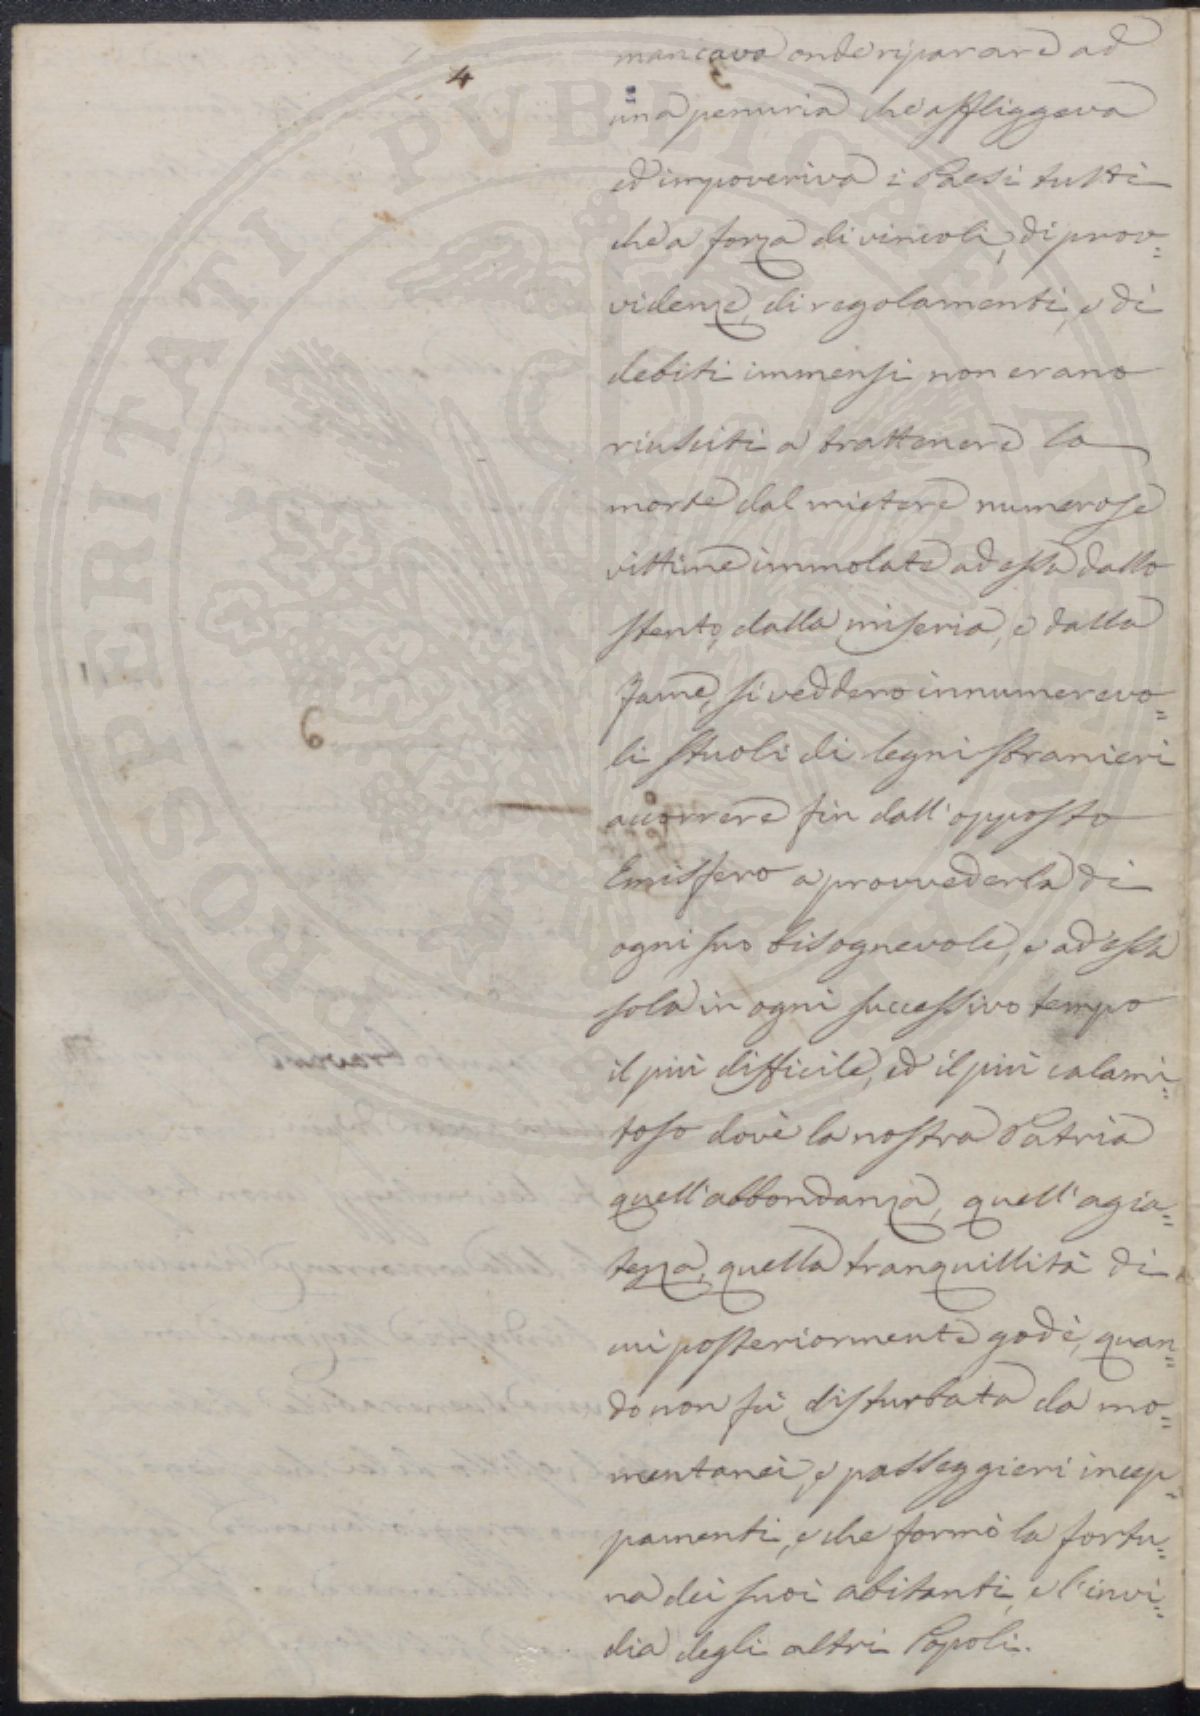 4
mancava onde riparare ad
una penuria che affliggeva
ed impoveriva i Paesi tutti
che a forza di vincoli, di prov=
videnze, di regolamenti, e di
debiti immensi non erano
riusciti a trattenere la
morte dal mietere numerose
vittime immolate ad essa dallo
stento, dalla miseria, e dalla
fame, si veddero innumerevo=
li stuoli di legni stranieri
accorrere fin dall'opposto
Emisfero a provvederla di
ogni suo bisognevole, e ad essa
sola in ogni successivo tempo
il più difficile, ed il più calami=
toso dovè la nostra Patria
quell'abbondanza, quell'agia=
tezza, quella tranquillità di
cui posteriormente godè, quan=
do non fù disturbata da mo=
mentanei, e passeggieri incep=
pamenti, e che formò la fortu=
na dei suoi abitanti, e l'invi=
dia degli altri Popoli.
6
PROSPERITATI PVBLICAE